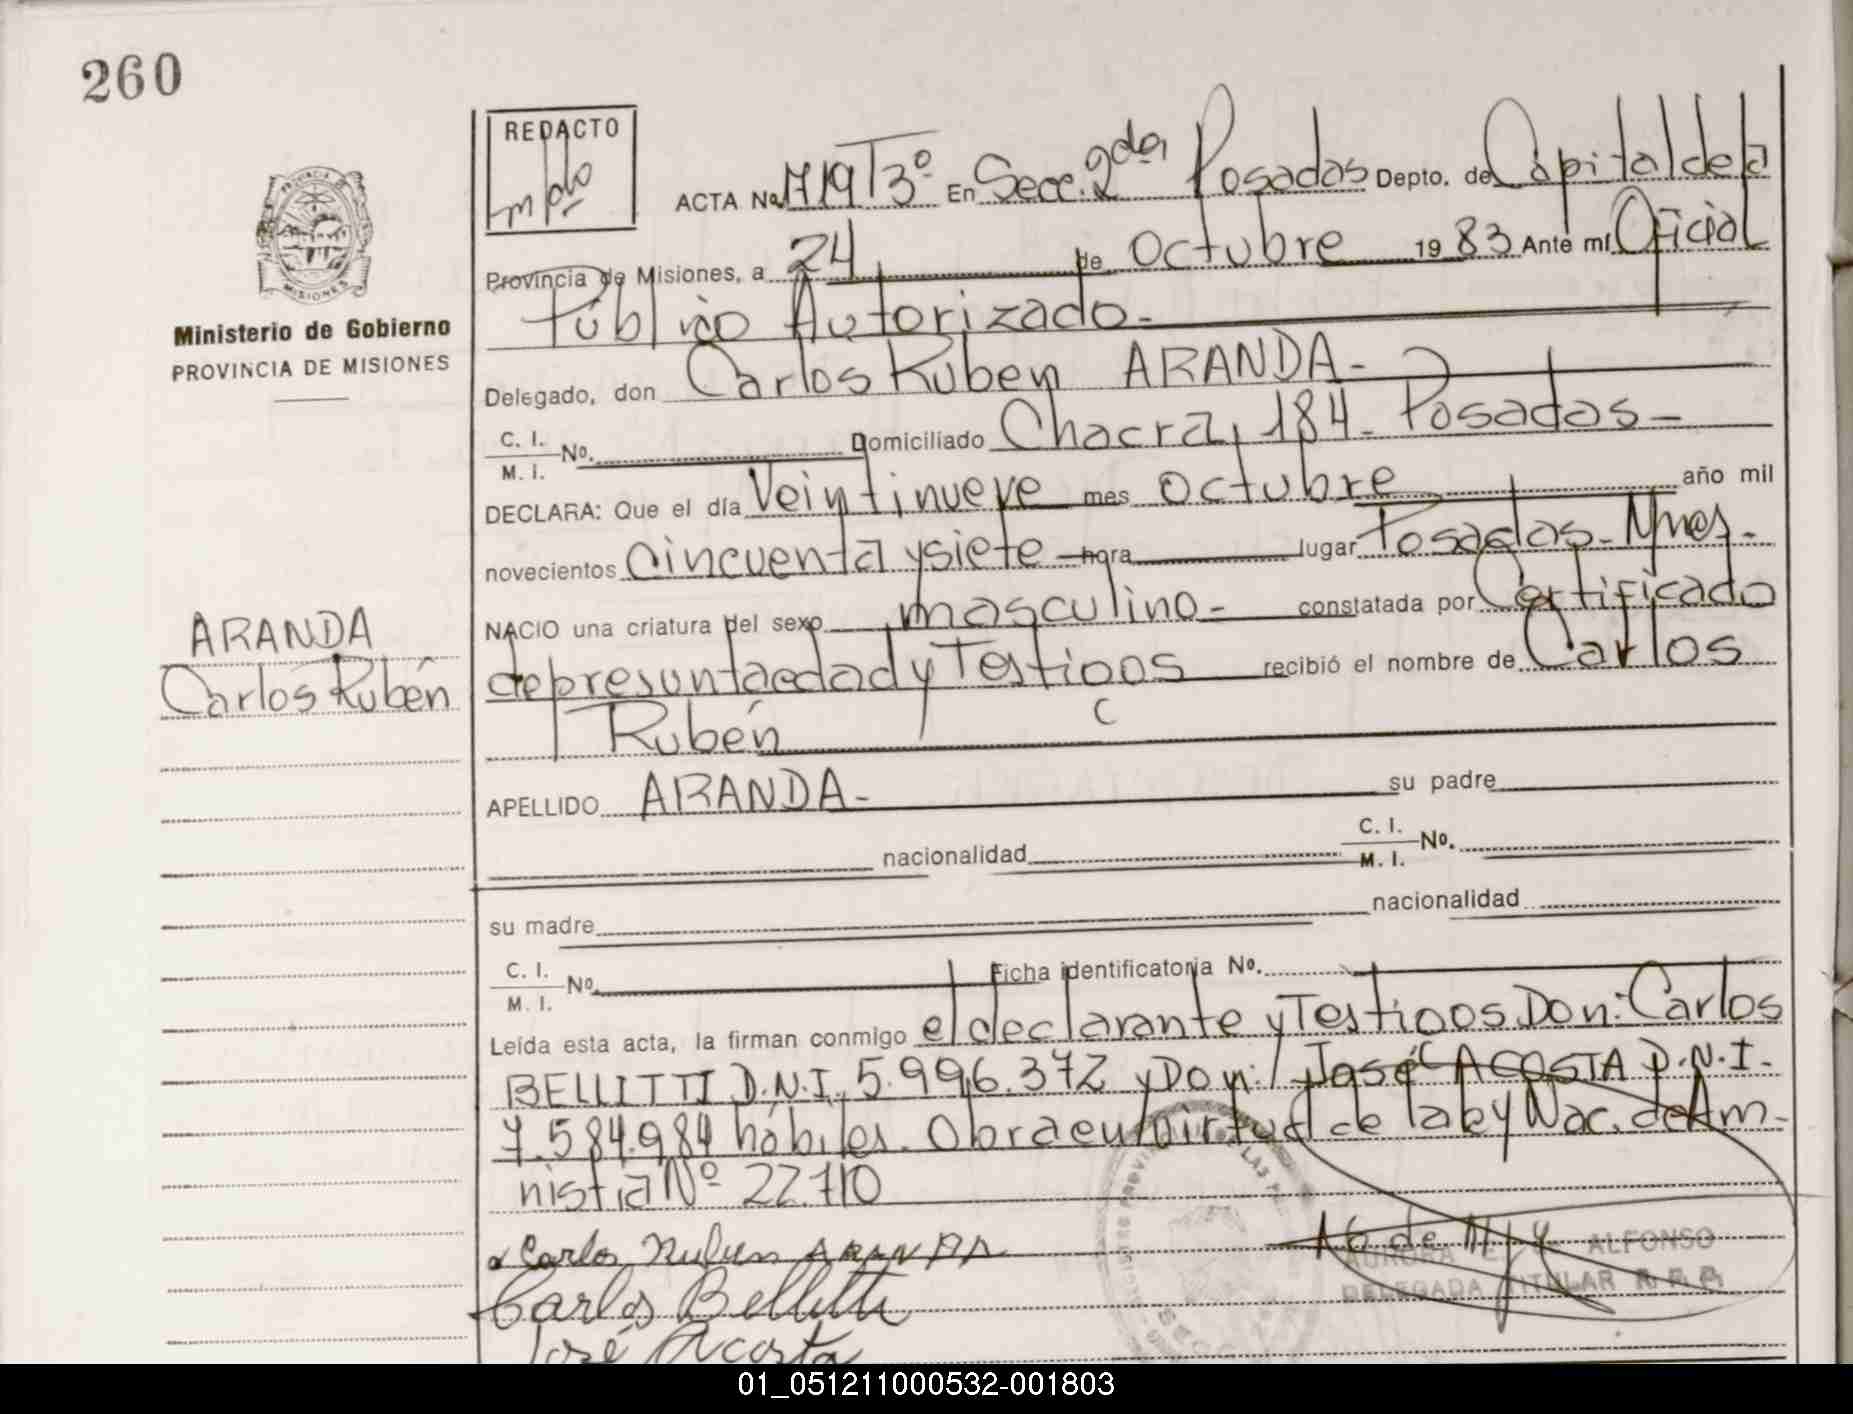 260
REDACTO
ACTA No. 1719 T3º En Secc. 2da Posadas Depto. de Capital de la
Provincia de Misiones, a 24 de Octubre 19 83 Ante mí Oficial
Público Autorizado.-
Ministerio de Gobierno
PROVINCIA DE MISIONES
Delegado, don Carlos Ruben ARANDA.-
C. I.
M. I. No. Domiciliado Chacra, 184. Posadas.-
DECLARA: Que el día Veintinueve mes octubre año mil
novecientos cincuenta y siete hora lugar Posadas. Mnes.-
NACIO una criatura del sexo masculino.- constatada por Certificado
de presunta edad y Testigos recibió el nombre de Carlos
Rubén
ARANDA
Carlos Rubén
APELLIDO ARANDA.- su padre
nacionalidad C. I.
M. I. No.
su madre nacionalidad
C. I.
M. I. No. Ficha identificatoria No.
Leída esta acta, la firman conmigo el declarante y Testigos Don: Carlos
BELLITTI D.N.I. 5.996.372 y Don: José ACOSTA D.N.I.
7.584.984 hábiles. Obra en virtud de la Ley Nac. de Am-
nistia Nº 22.710
Carlos Ruben ARANDA
Carlos Bellitti
José Acosta
AURORA ALFONSO
DELEGADA TITULAR R. P. P.
01_051211000532-001803